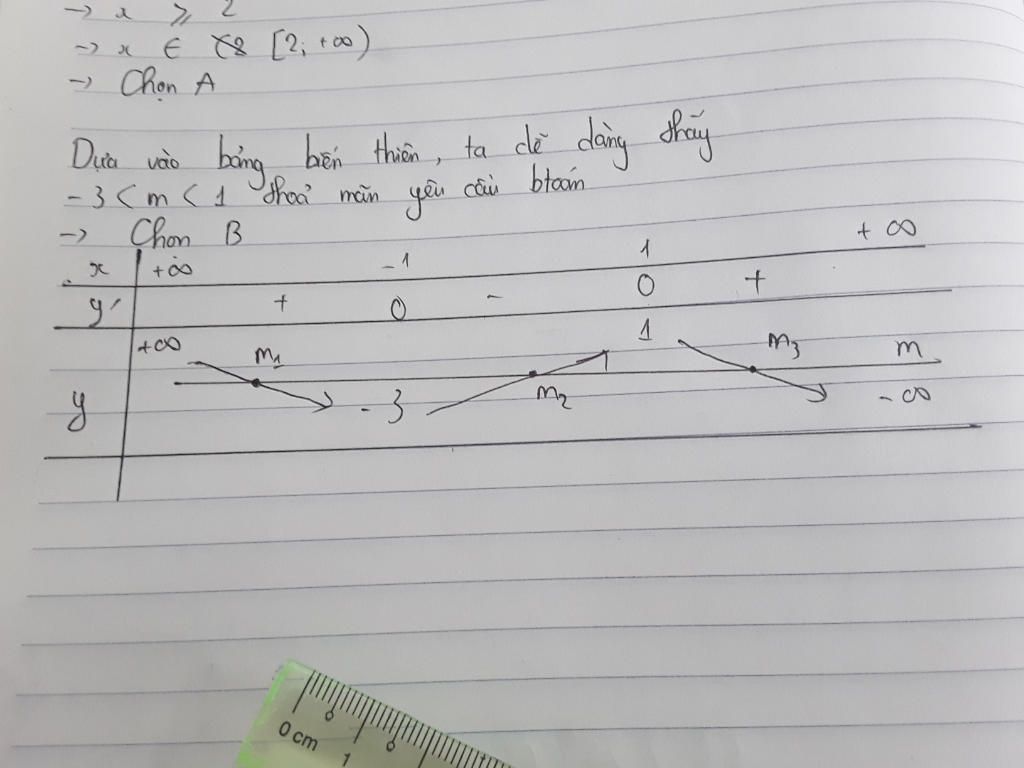 → x ≥ 2
→ x ∈ [2; +∞)
→ Chọn A
Dựa vào bảng biến thiên, ta dễ dàng thấy
-3 < m < 1 thoả mãn yêu cầu btoán
→ Chọn B
x +∞ -1 1 +∞
y' + 0 - 0 +
+∞ m₁ 1 m₃ m
y -3 m₂ -∞
0 cm 1